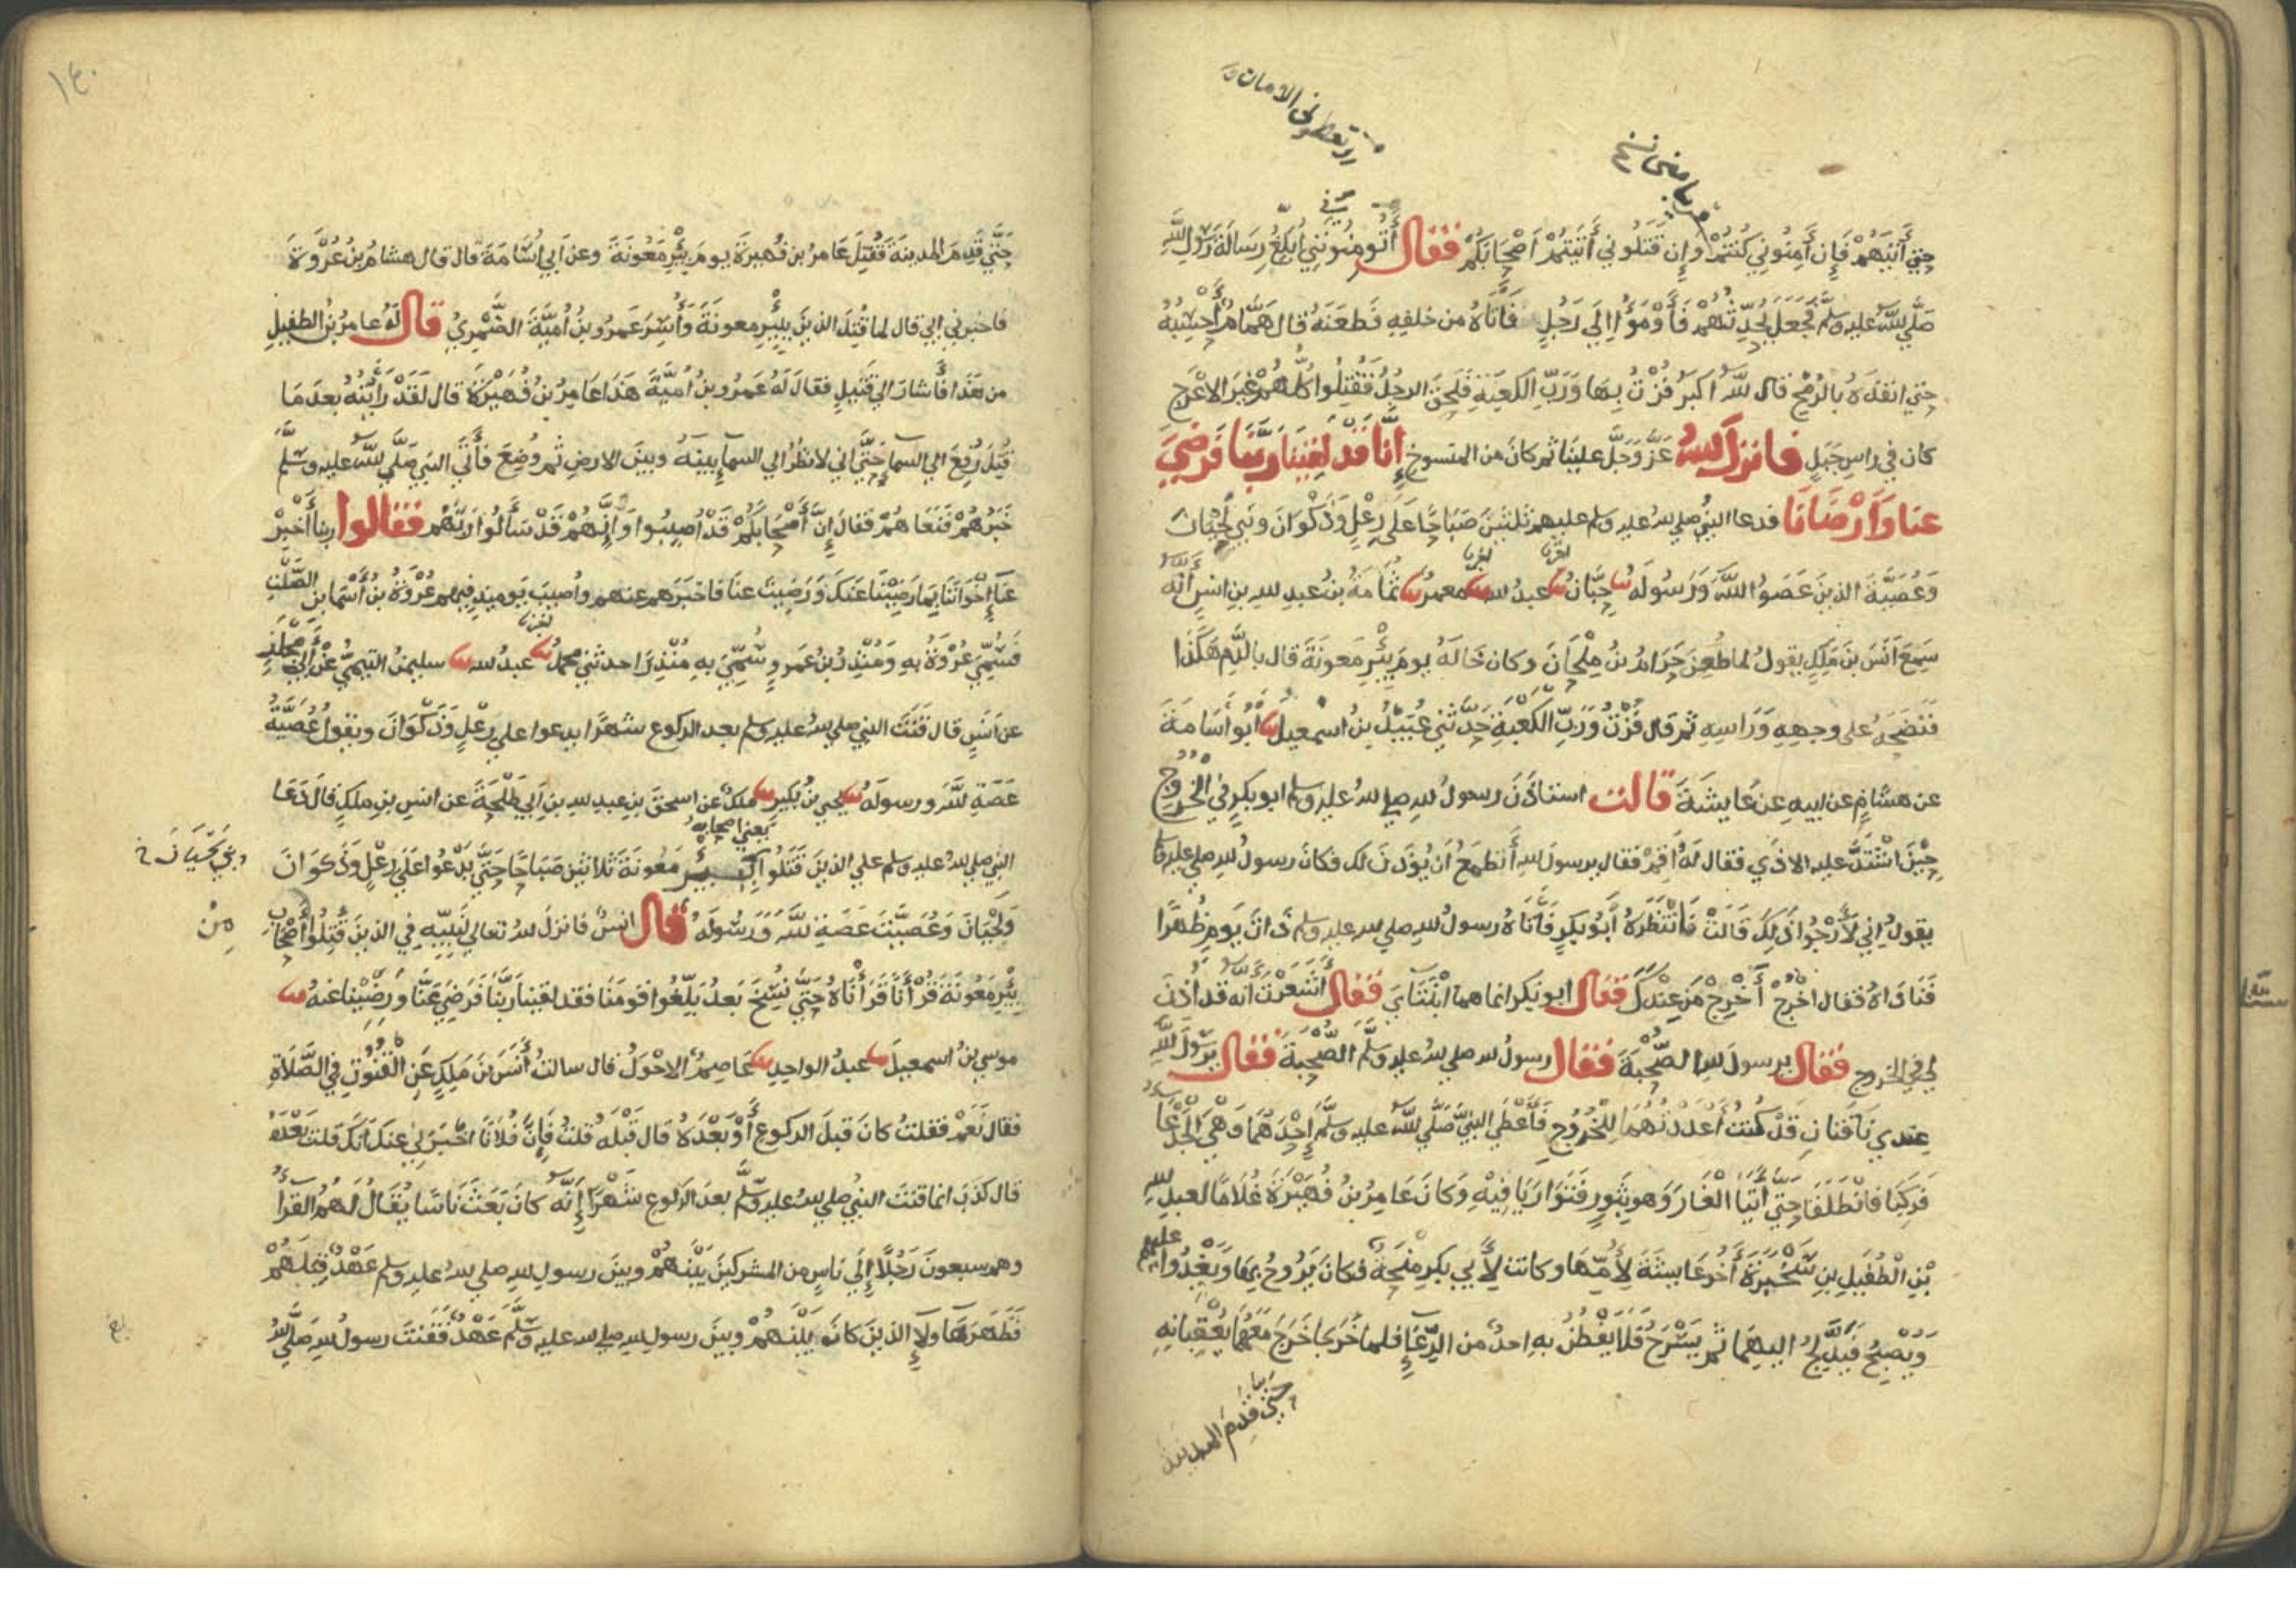 حتي آتيهم فإن آمنوني كنتم وإن قتلوني أتيتم أصحابكم فقال أتومنونني أبلغ رسالة رسول الله
صلي الله عليه وسلم فجعل يحدثهم فأومؤا إلي رجل فأتاه من خلفه فطعنه قال همام أحسبه
حتي انفذه بالرمح قال الله اكبر فزت بها ورب الكعبة فلحق الرجل فقتلوا كلهم غير الاعرج
كان في راس جبل فانزل الله عز وجل علينا ثم كان من المنسوخ إنا قد لقينا ربنا فرضي
عنا وأرضانا فدعا النبي صلي الله عليه وسلم عليهم ثلثين صباحا على رعل وذكوان وبني لحيان
وعصية الذين عصوا الله ورسوله حبان عبد الله معمر ثمامة بن عبد الله بن انس أنه
سمع أنس بن ملك يقول لما طعن حرام بن ملحان وكان خاله يوم بئر معونة قال بالدم هكذا
فنضحه على وجهه وراسه ثم قال فزت ورب الكعبة حدثني عبيد بن اسمعيل أبو أسامة
عن هشام عن ابيه عن عايشة قالت استاذن رسول الله صلي الله عليه وسلم ابو بكر في الخروج
حين اشتد عليه الاذي فقال له أقم فقال يرسول الله أتطمع أن يؤذن لك فكان رسول الله صلي عليه وسلم
يقول إني لأرجوا ذلك قالت فانتظره أبو بكر فأتاه رسول الله صلي الله عليه وسلم ذات يوم ظهرا
فناداه فقال اخرج أخرج من عندك فقال ابو بكر انما هما ابنتاي فقال أشعرت أنه قد اذن
لي في الخروج فقال يرسول الله الصحبة فقال رسول الله صلي الله عليه وسلم الصحبة فقال يرسول الله
عندي ناقتان قد كنت أعددتهما للخروج فأعطي النبي صلي الله عليه وسلم إحدهما وهي الجدعا
فركبا فانطلقا حتي أتيا الغار وهو بثور فتواريا فيه وكان عامر بن فهيرة غلاما لعبد الله
بن الطفيل بن سخبرة أخو عايشة لأمها وكانت لأبي بكر منحة فكان يروح بها ويغدوا عليهم
ويصبح فيدلج اليهما ثم يسرح فلا يفطن به احد من الرعاء فلما خرجا خرج معهما يعقبانه
حتي قدم المدينة
١٤٠
حتي قدم المدينة فقتل عامر بن فهيرة يوم بئر معونة وعن ابي أسامة قال قال هشام بن عروة
فاخبرني ابي قال لما قتل الذين ببئر معونة وأسر عمرو بن أمية الضمري قال له عامر بن الطفيل
من هذا فأشار الي قتيل فقال له عمرو بن أمية هذا عامر بن فهيرة قال لقد رأيته بعد ما
قتل رفع الي السماء حتي اني لانظر الي السماء بينه وبين الارض ثم وضع فأتي النبي صلي الله عليه وسلم
خبرهم فنعاهم فقال إن أصحابكم قد أصيبوا وإنهم قد سألوا ربهم فقالوا ربنا أخبر
عنا إخواننا بما رضينا عنك ورضيت عنا فاخبرهم عنهم واصيب يوميذ فيهم عروة بن أسما بن الصلت
فسمي عروة به ومنذر بن عمرو سمي به منذرا حدثني محمد عبد الله سليمن التيمي عن أبي مجلز
عن انس قال قنت النبي صلي الله عليه وسلم بعد الركوع شهرا يدعوا علي رعل وذكوان ويقول عصية
عصت الله ورسوله يحيي بن بكير ملك عن اسحق بن عبد الله بن ابي طلحة عن انس بن ملك قال دعا
يعني اصحابه
النبي صلي الله عليه وسلم علي الذين قتلوا ببئر معونة ثلاثين صباحا حتي يدعوا على رعل وذكوان
وبني لحيان
ولحيان وعصية عصت الله ورسوله قال انس فانزل الله تعالي لنبيه في الذين قتلوا أصحاب
من
بئر معونة قرأنا قرأناه حتي نسخ بعد بلغوا قومنا فقد لقينا ربنا فرضي عنا ورضينا عنه
موسي بن اسمعيل عبد الواحد عاصم الاحول قال سالت أنس بن ملك عن القنوت في الصلاة
فقال نعم فقلت كان قبل الركوع أو بعده قال قبله قلت فإن فلانا اخبرني عنك أنك قلت بعده
قال كذب انما قنت النبي صلي الله عليه وسلم بعد الركوع شهرا إنه كان بعث ناسا يقال لهم القرأ
وهم سبعون رجلا إلي ناس من المشركين بينهم وبين رسول الله صلي الله عليه وسلم عهد قبلهم
فظهر هاولاء الذين كان بينهم وبين رسول الله صلي الله عليه وسلم عهد فقنت رسول الله صلي الله